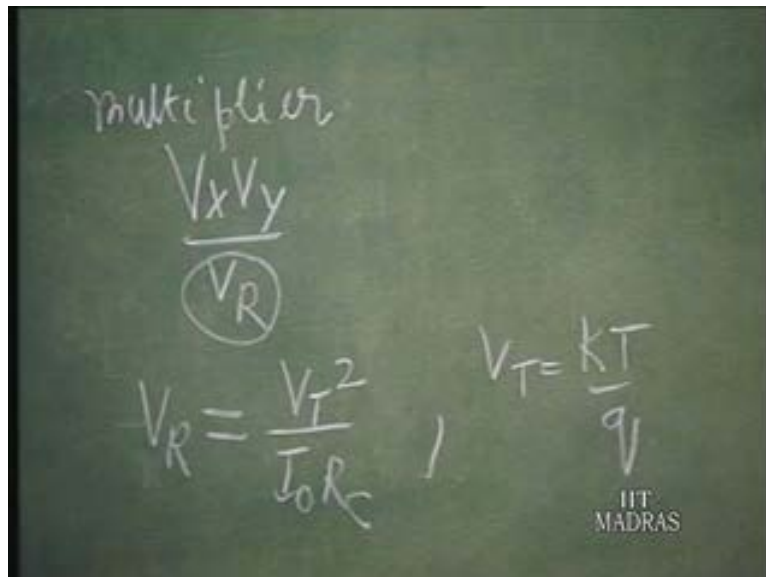 multiplier
VxVy
VR
VR = VT² / I0Rc , VT = KT / q
IIT
MADRAS